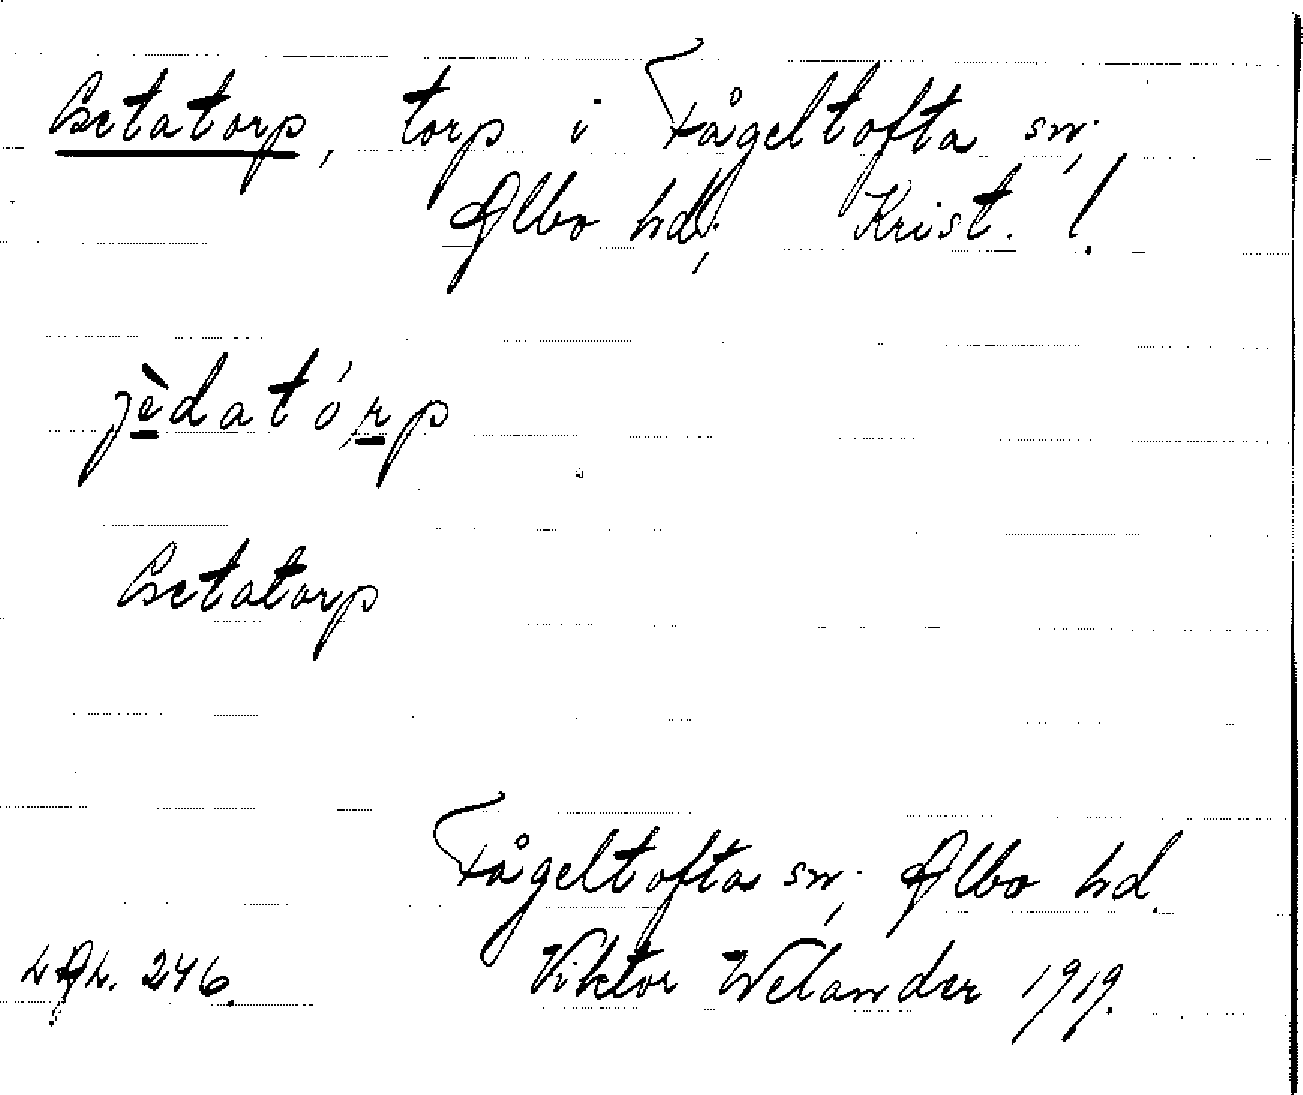 Getatorp, torp i Fågeltofta sn,
Albo hd, Krist. l.
jèdatórp
Getatorp
Fågeltofta sn, Albo hd.
LAL. 246. Viktor Welander 1919.